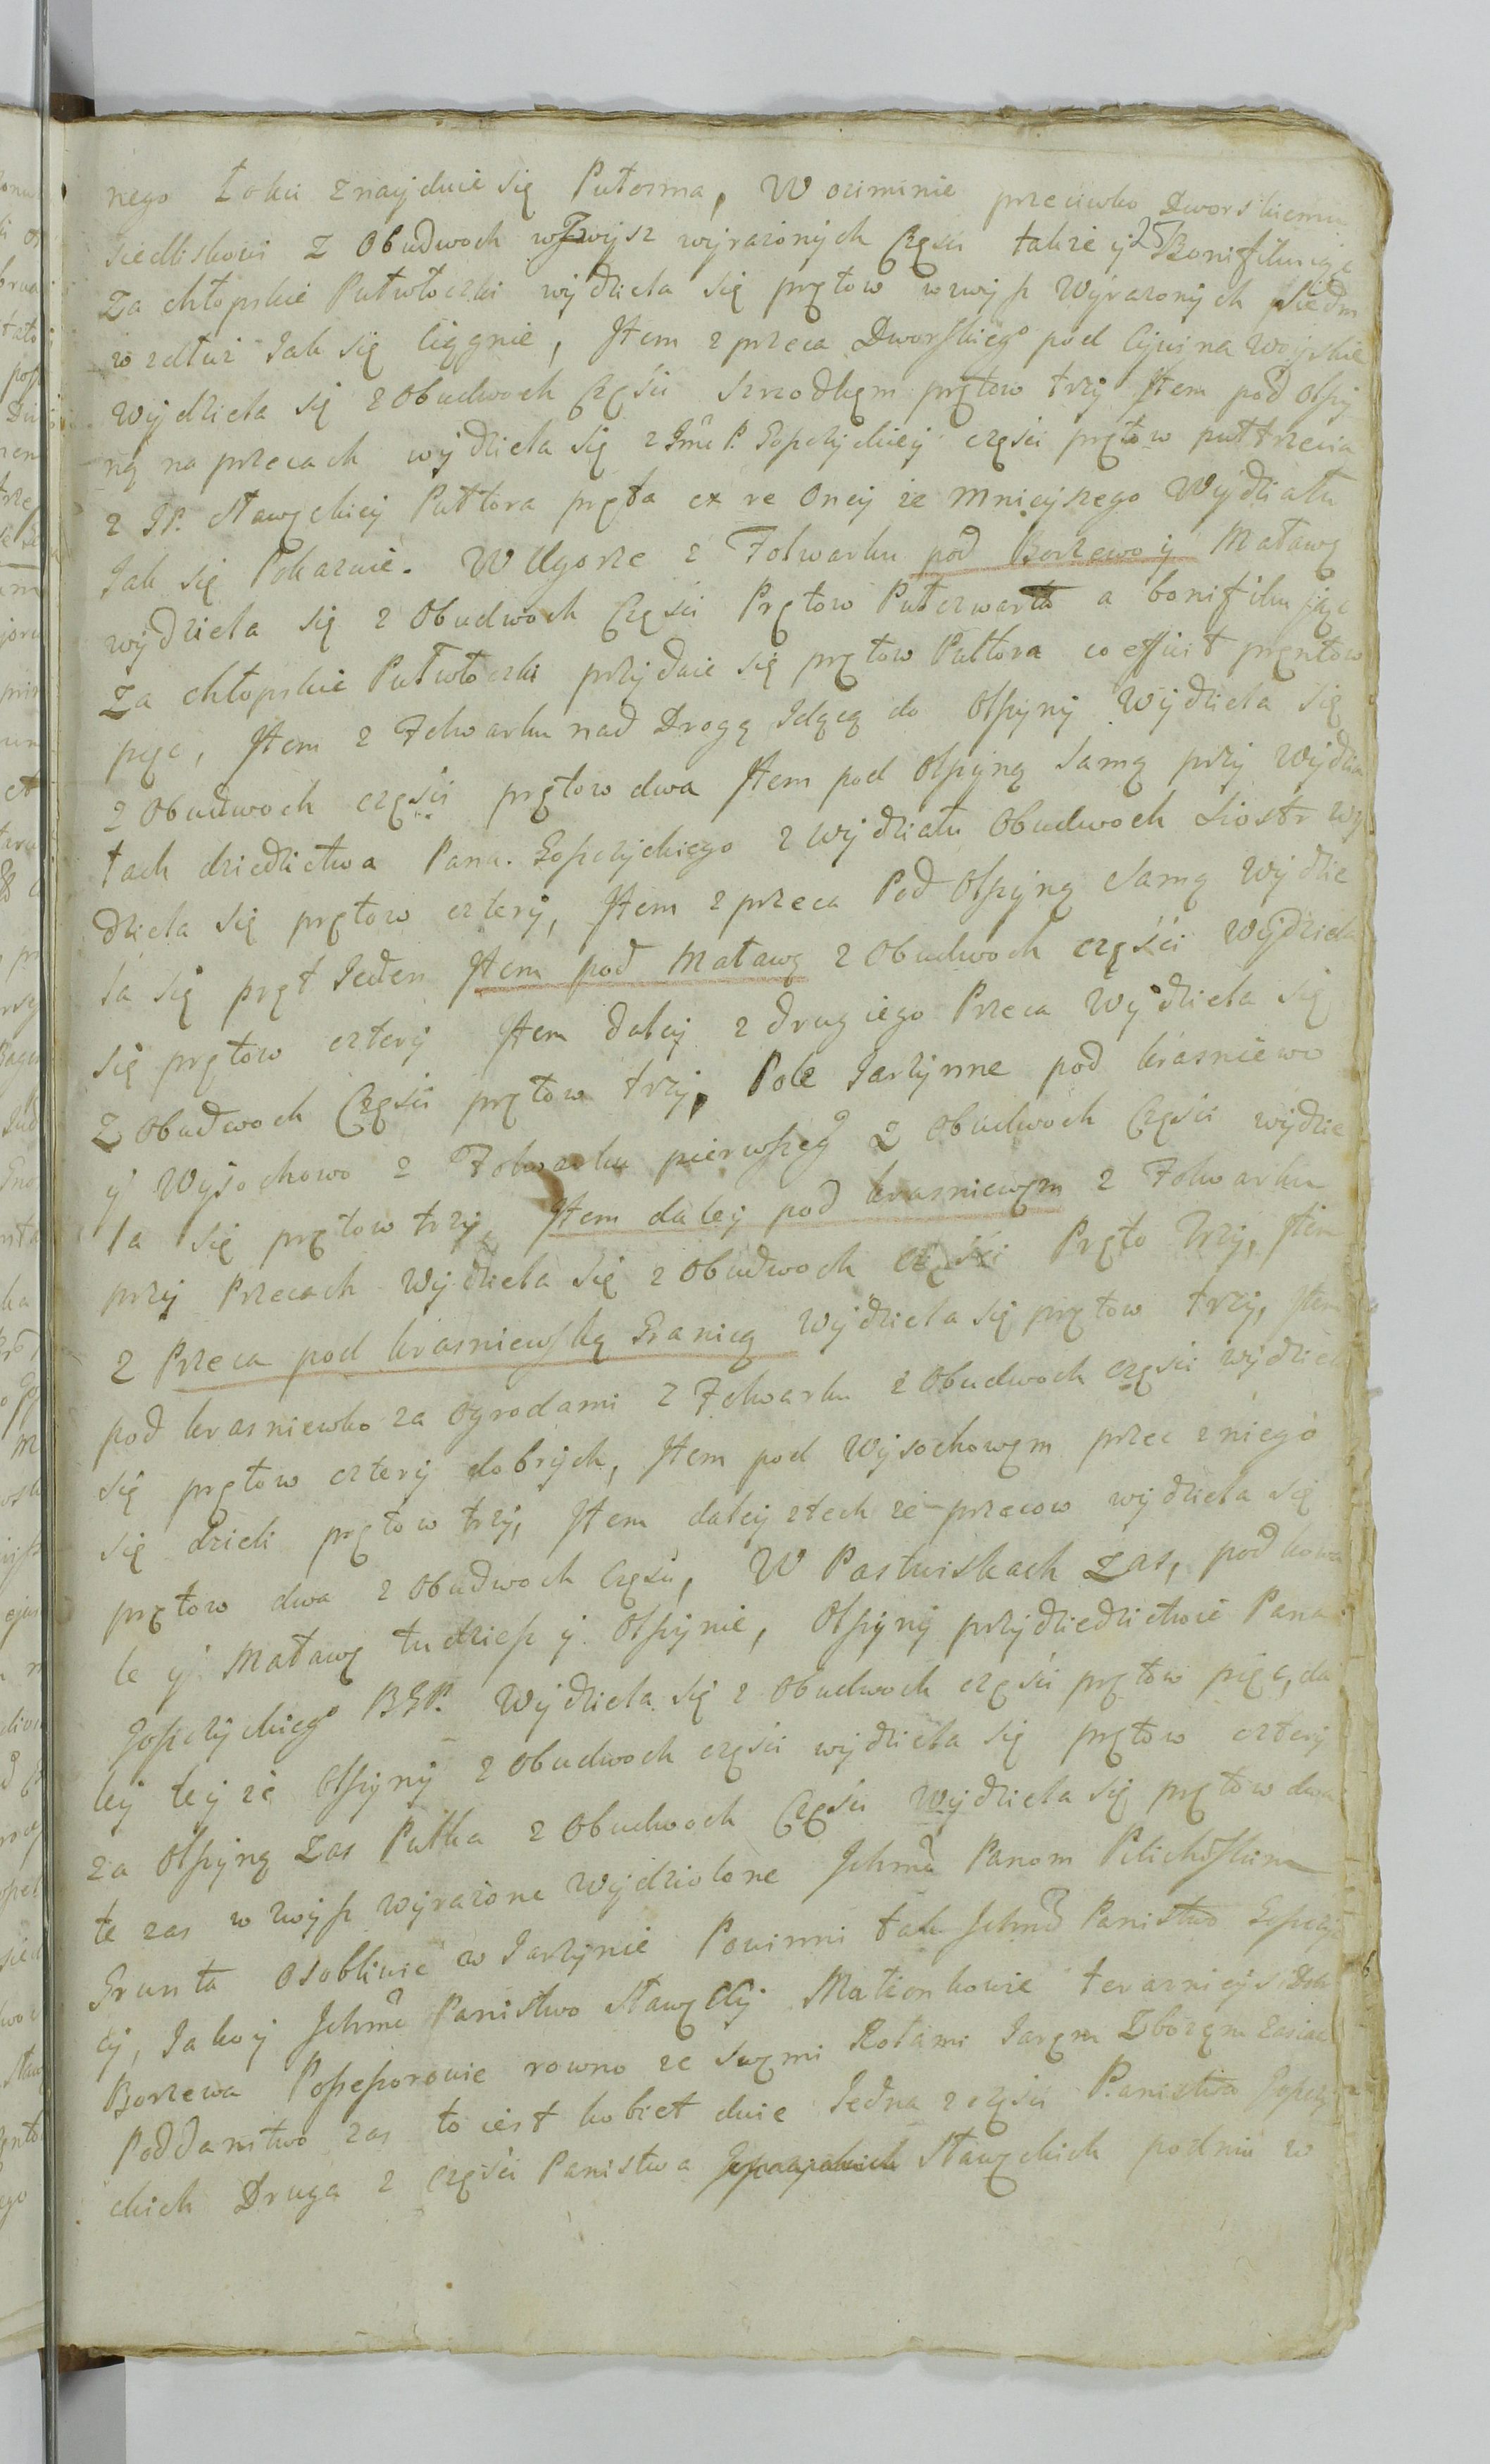 nego Łoku znayduie się Pułosma, W oziminie przeciwko Dworskiemu
siedliskowi z Obudwoch wzwysz wyrazonych Częsci takze y Bonifikuiąc
za chłopskie Pułwłoczki wydziela się prętow wzwysz Wyrazonych siedm
wzdłuz Jak się ciągnie, Item z przeca Dworskiego pod
Wydziela się z Obudwoch Częsci srzodkęm prętow trzy Item pod Olszy
ną na przecach wydziela się z Jmc P. Gopczyckiey częsci prętow puttrzecia
z JP. Stawęckiey Puttora pręta ex re Oney ze mnieyszego Wydziału
Jak się Pokazuie. W Ugorze z Folwarku pod Borzewo y Matawę
wydziela się z Obudwoch Częsci Prętow Pułczwarta a bonifikuiąc
Za chłopskie Pułwłoczki przydaie się prętow Puttora co efficit prentow
pięc, Item z Folwarku nad Drogą Idącą do Olszyny Wydziela się
z Obudwoch częsci prętow dwa Item pod Olszyną samą przy Wydzia
łach dziedzictwa Pana. Gopczyckiego z wydziału Obudwoch Siostr wy
dziela się prętow cztery, Item z przeca Pod Olszyną samą wydzie
la się pręt Ieden Item pod Matawę z Obudwoch częsci Wydziela
się prętow cztery Item daley z drugiego Przeca Wydziela się
Z Obudwoch Częsci prętow trzy, Pole Jarzynne pod krasniewo
y Wysochowo z Folwarku pierwszego z Obudwoch Częsci wydzie
la się prętow trzy, Item daley pod krasniewęm z Folwarku
przy Przecach Wydziela się z Obudwoch częsci Pręto Trzy, Item
z Przeca pod krasniewską Granicą wydziela się prętow trzy, Item
pod krasniewko za Ogrodami z Folwarku z Obudwoch częsci wydziela
się prętow cztery dobrych, Item pod Wysochowęm przec z niego
się dzieli prętow trzy, Item daley z tech ze przecow wydziela się
prętow dwa z Obudwoch Częsci, W Pastwiskach zas, pod kowa
le y Matawę tudziesz y Olszynie, Olszyny przydziedzictwie Pana
Gopczyckiego BGP. Wydziela się z Obudwoch częsci prętow pięc, da
ley tey ze Olszyny z Obudwoch częsci wydziela się prętow cztery
za Olszyną zas Pulka z Obudwoch Częsci Wydziela się prętow dwa
te zas wzwysz wyrazone wydzielone Jchmc Panom Pilichowskim
Grunta osobliwie w Jarzynie Powinni tak Jchmc Panistwo Gopczyc
cy, Jako y Jchmc Panistwo Stawęccy Małzonkowie teraznieysi
Borzewa Possessorowie rowno ze swęmi Rolami Jaręm Zbozęm zasiac
Poddanstwo zas to iest kobiet dwie Iedna z częsci Panistwa Gopczy
ckich Druga z częsci Panistwa Stawęckich podniu w